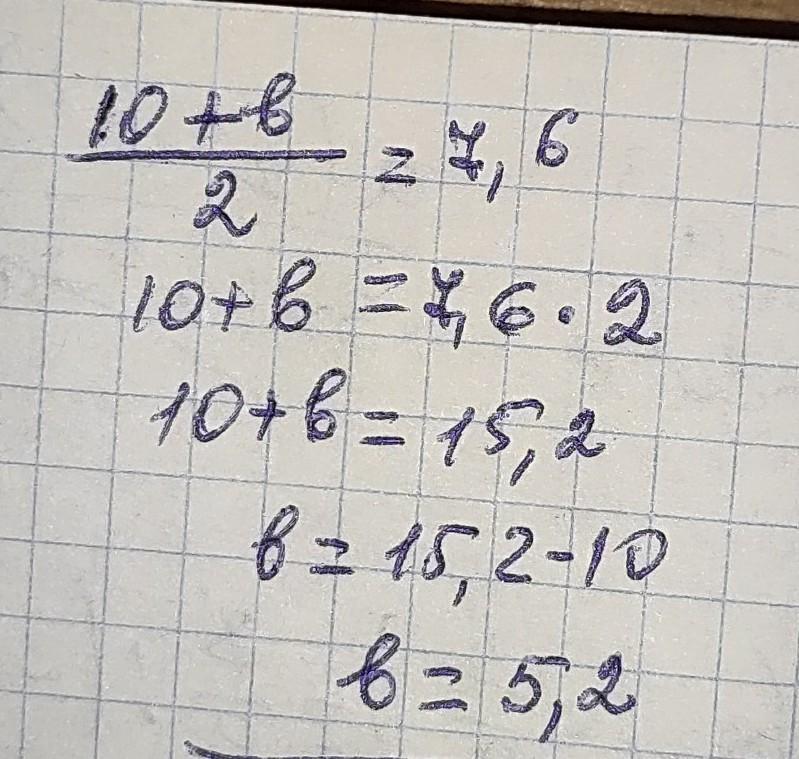 10+в / 2 = 7,6
10+в = 7,6·2
10+в = 15,2
в = 15,2-10
в = 5,2